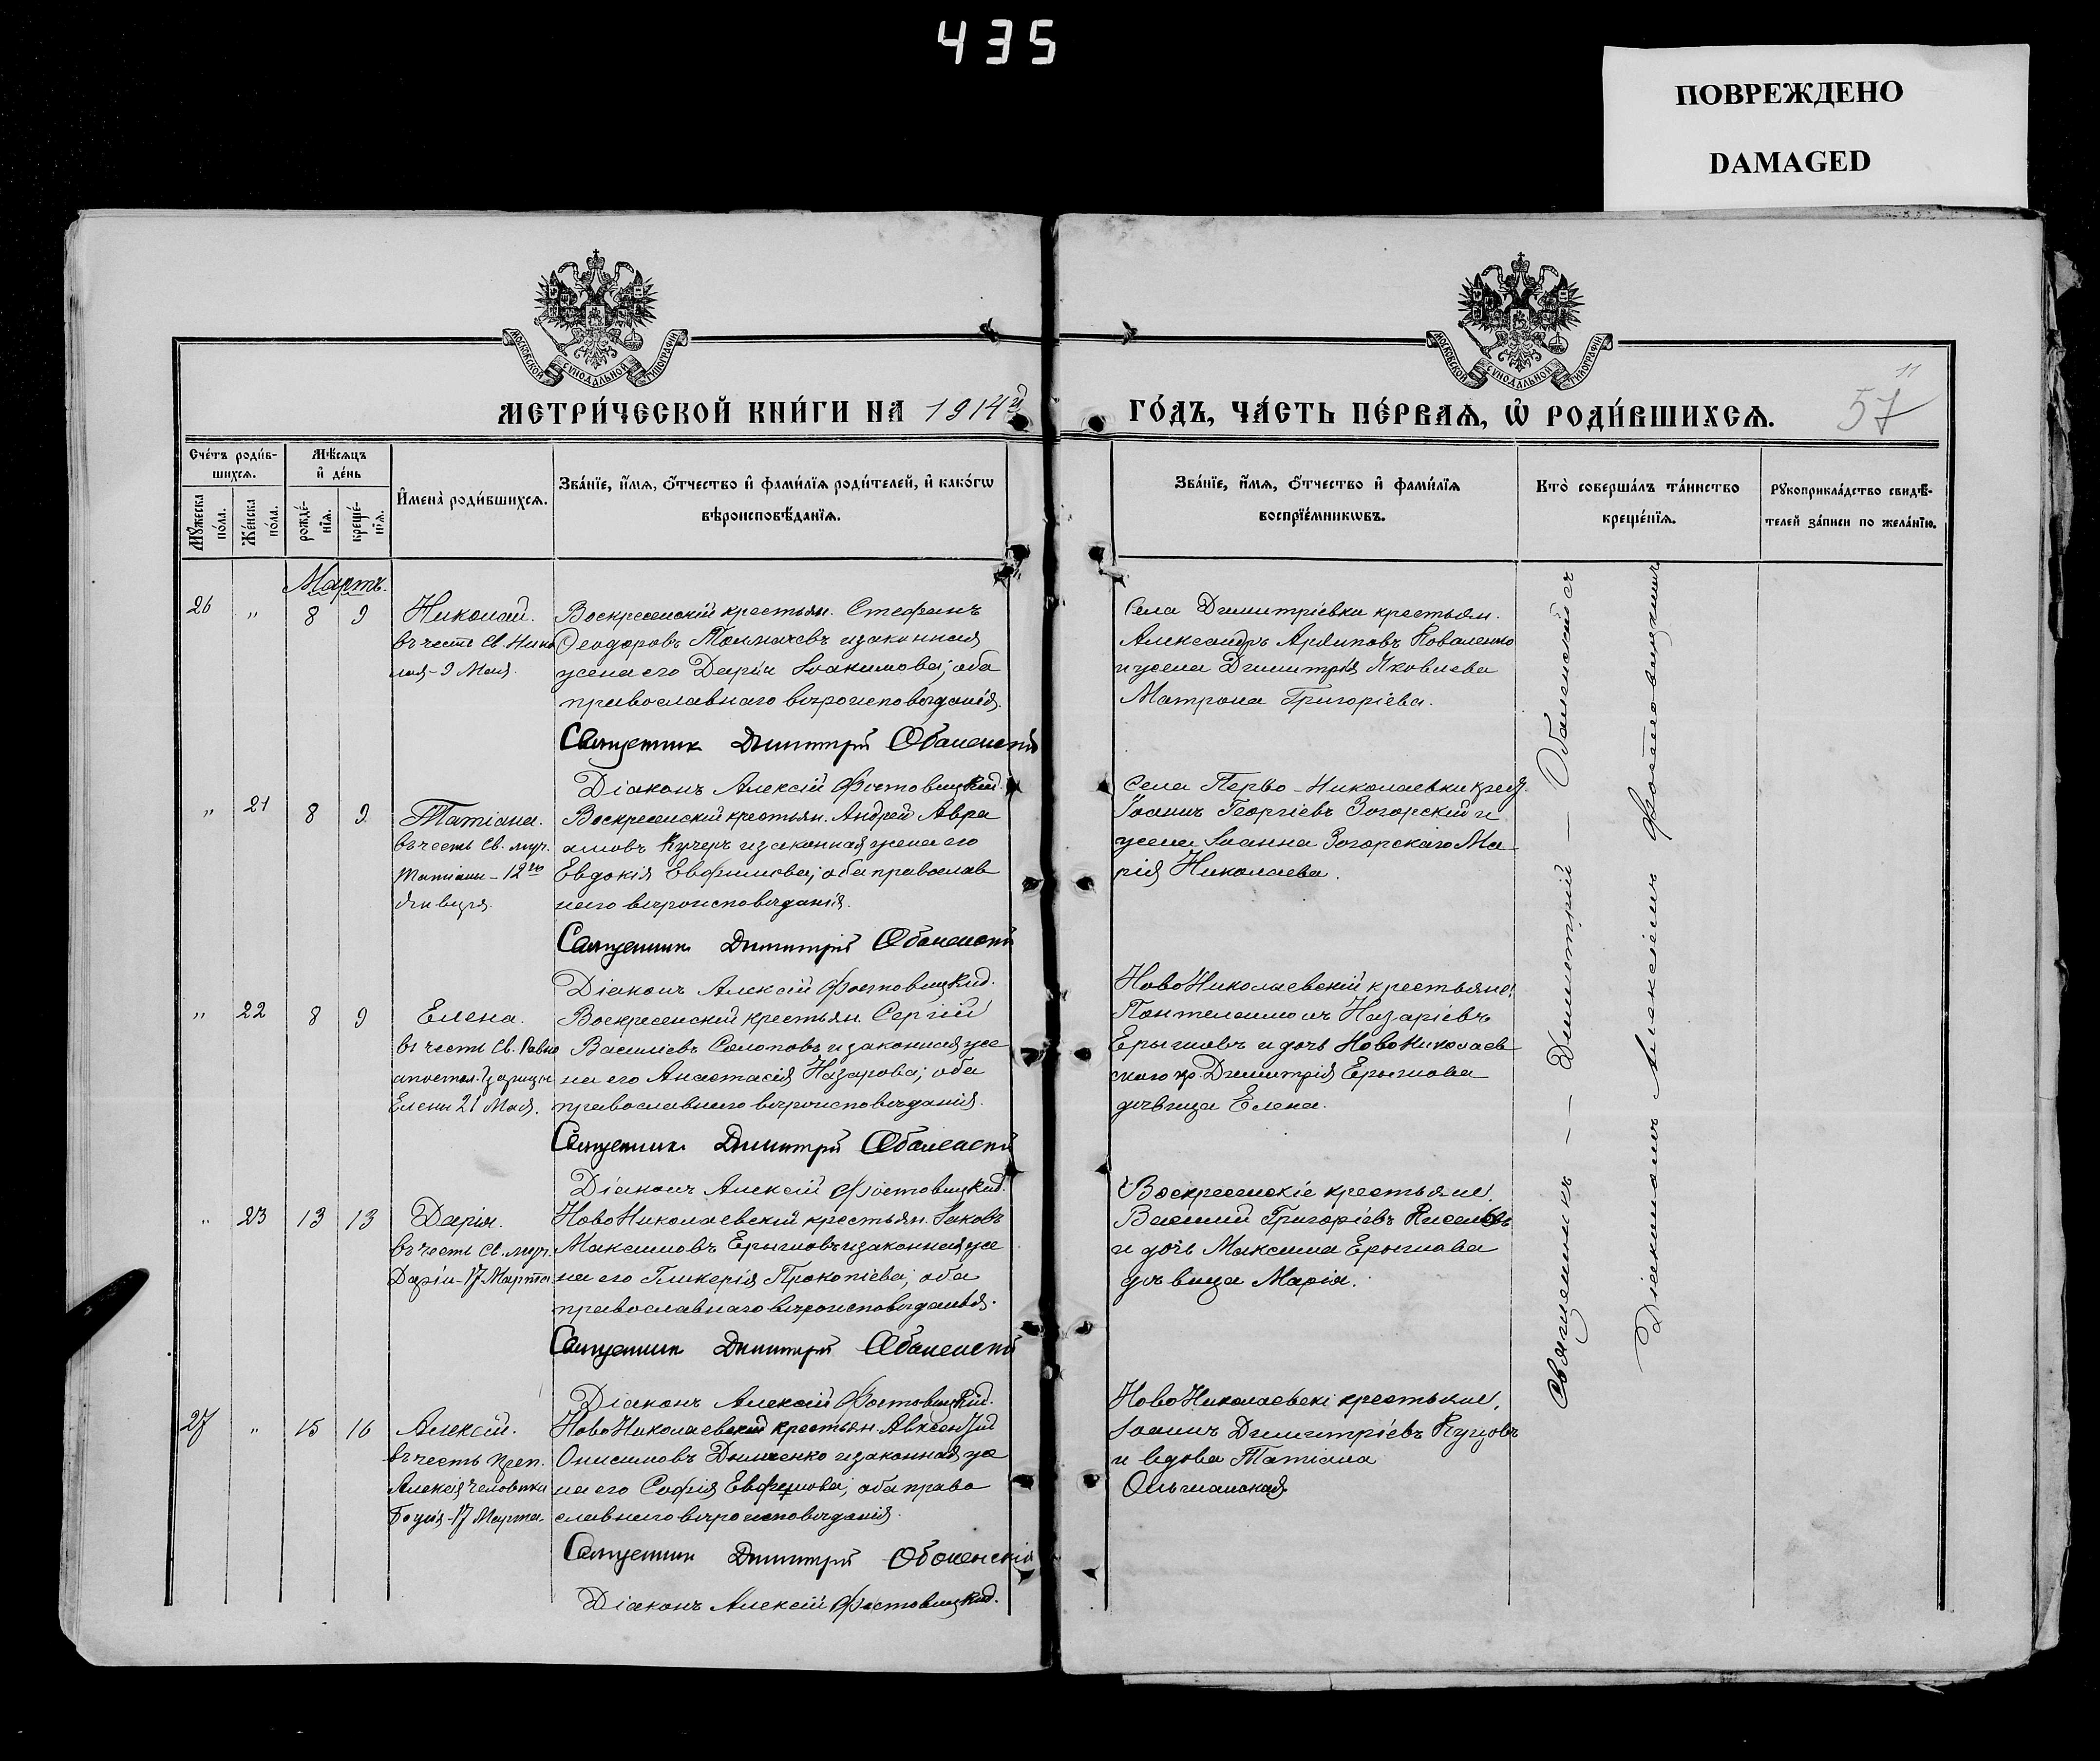 435
ПОВРЕЖДЕНО
DAMAGED
МОСКОВСКОЙ СѴНОДАЛЬНОЙ ТИПОГРАФІИ
МОСКОВСКОЙ СѴНОДАЛЬНОЙ ТИПОГРАФІИ
МЕТРИ́ЧЕСКОЙ КНИ́ГИ НА 1914й
ГО́ДЪ, ЧА́СТЬ ПЕ́РВАѦ, Ѡ҆ РОДИ́ВШИХСѦ.
11
57
Сче́тъ роди́в-
шихсѧ.
Мѣ́сѧцъ
и҆ де́нь
Мꙋ́жеска по́ла.
Же́нска по́ла.
рожде́-нїѧ.
креще́-нїѧ.
И҆мена̀ роди́вшихсѧ.
Зва́нїе, и҆́мѧ, ѻ҆́тчество и҆ фами́лїѧ роди́телей, и҆ како́гѡ
вѣроисповѣ́данїѧ.
Зва́нїе, и҆́мѧ, ѻ҆́тчество и҆ фами́лїѧ
воспрїе́мникѡвъ.
Кто̀ соверша́лъ та́инство
креще́нїѧ.
Рꙋкоприкла́дство свидѣ́-
телей за́писи по жела́нїю.
Мартъ.
26 " 8 9 Николай.
въ честь Св. Нико
лая - 9 Мая.
Воскресенскій крестьян. Стефанъ
Ѳеодоровъ Толмачевъ и законная
жена его Дарія Іоакимова; оба
православнаго вѣроисповѣданія.
Священник Димитрій Оболенскій
Діаконъ Алексій Фостовицкій.
Села Димитріевки крестьян.
Александръ Архиповъ Коваленко
и жена Димитрія Яковлева
Матрона Григоріева.
" 21 8 9 Татіана.
въ честь Св. муч.
Татіаны - 12го
Января.
Воскресенскій крестьян. Андрей Авра
амовъ Кучеръ и законная жена его
Евдокія Евфимова; оба православ
наго вѣроисповѣданія.
Священник Димитрій Оболенскій
Діаконъ Алексій Фостовицкій.
Села Перво-Николаевки крест.
Іоаннъ Георгіевъ Зогорский и
жена Іоанна Зогорскаго Ма
рія Николаева.
" 22 8 9 Елена.
въ честь Св. Равно
апостол. Царицы
Елены 21 Мая.
Воскресенскій крестьян. Сергій
Василіевъ Солоповъ и законная же
на его Анастасія Назарова; оба
православнаго вѣроисповѣданія.
Священник Димитрій Оболенскій
Діаконъ Алексій Фостовицкій.
Ново Николаевскій крестьяне:
Пантелеимонъ Назаріевъ
Ерыгиовъ и дочь Ново Николаев
скаго кр. Димитрія Ерыгиова
дѣвица Елена.
" 23 13 13 Дарія.
въ честь Св. муч.
Даріи - 17 Марта
Ново Николаевскій крестьян. Іаковъ
Максимовъ Ерыгиовъ и законная же
на его Гликерія Прокопіева; оба
православнаго вѣроисповѣданія.
Священник Димитрій Оболенскій
Діаконъ Алексій Фостовицкій.
Воскресенскіе крестьяне:
Василий Григоріевъ Киселевъ
и дочь Максима Ерыгиова
дѣвица Марія.
27 " 15 16 Алексій.
въ честь преп.
Алексія человѣка
Божія - 17 Марта.
Ново Николаевский крестьян. Авксентий
Онисимовъ Димченко и законная же
на его Софія Евфимова; оба право
славнаго вѣроисповѣданія.
Священник Димитрій Оболенскій
Діаконъ Алексій Фостовицкій.
Ново Николаевскі крестьяне,
Іоаннъ Димитріевъ Куцовъ
и вдова Татіана
Ольшанская.
Священникъ — Димитрій — Оболенскій съ
Діакономъ Алексіемъ Фостовицкимъ